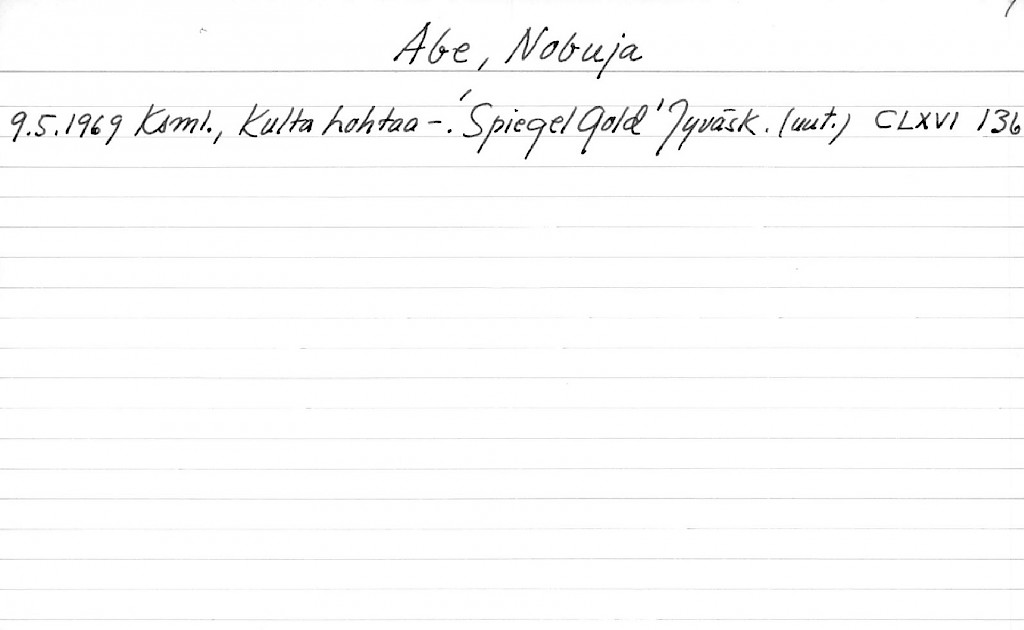 Abe, Nobuja
9.5.1969 Ksml., Kulta hohtaa -. 'Spiegel Gold' Jyväsk. (uut.) CLXVI 136